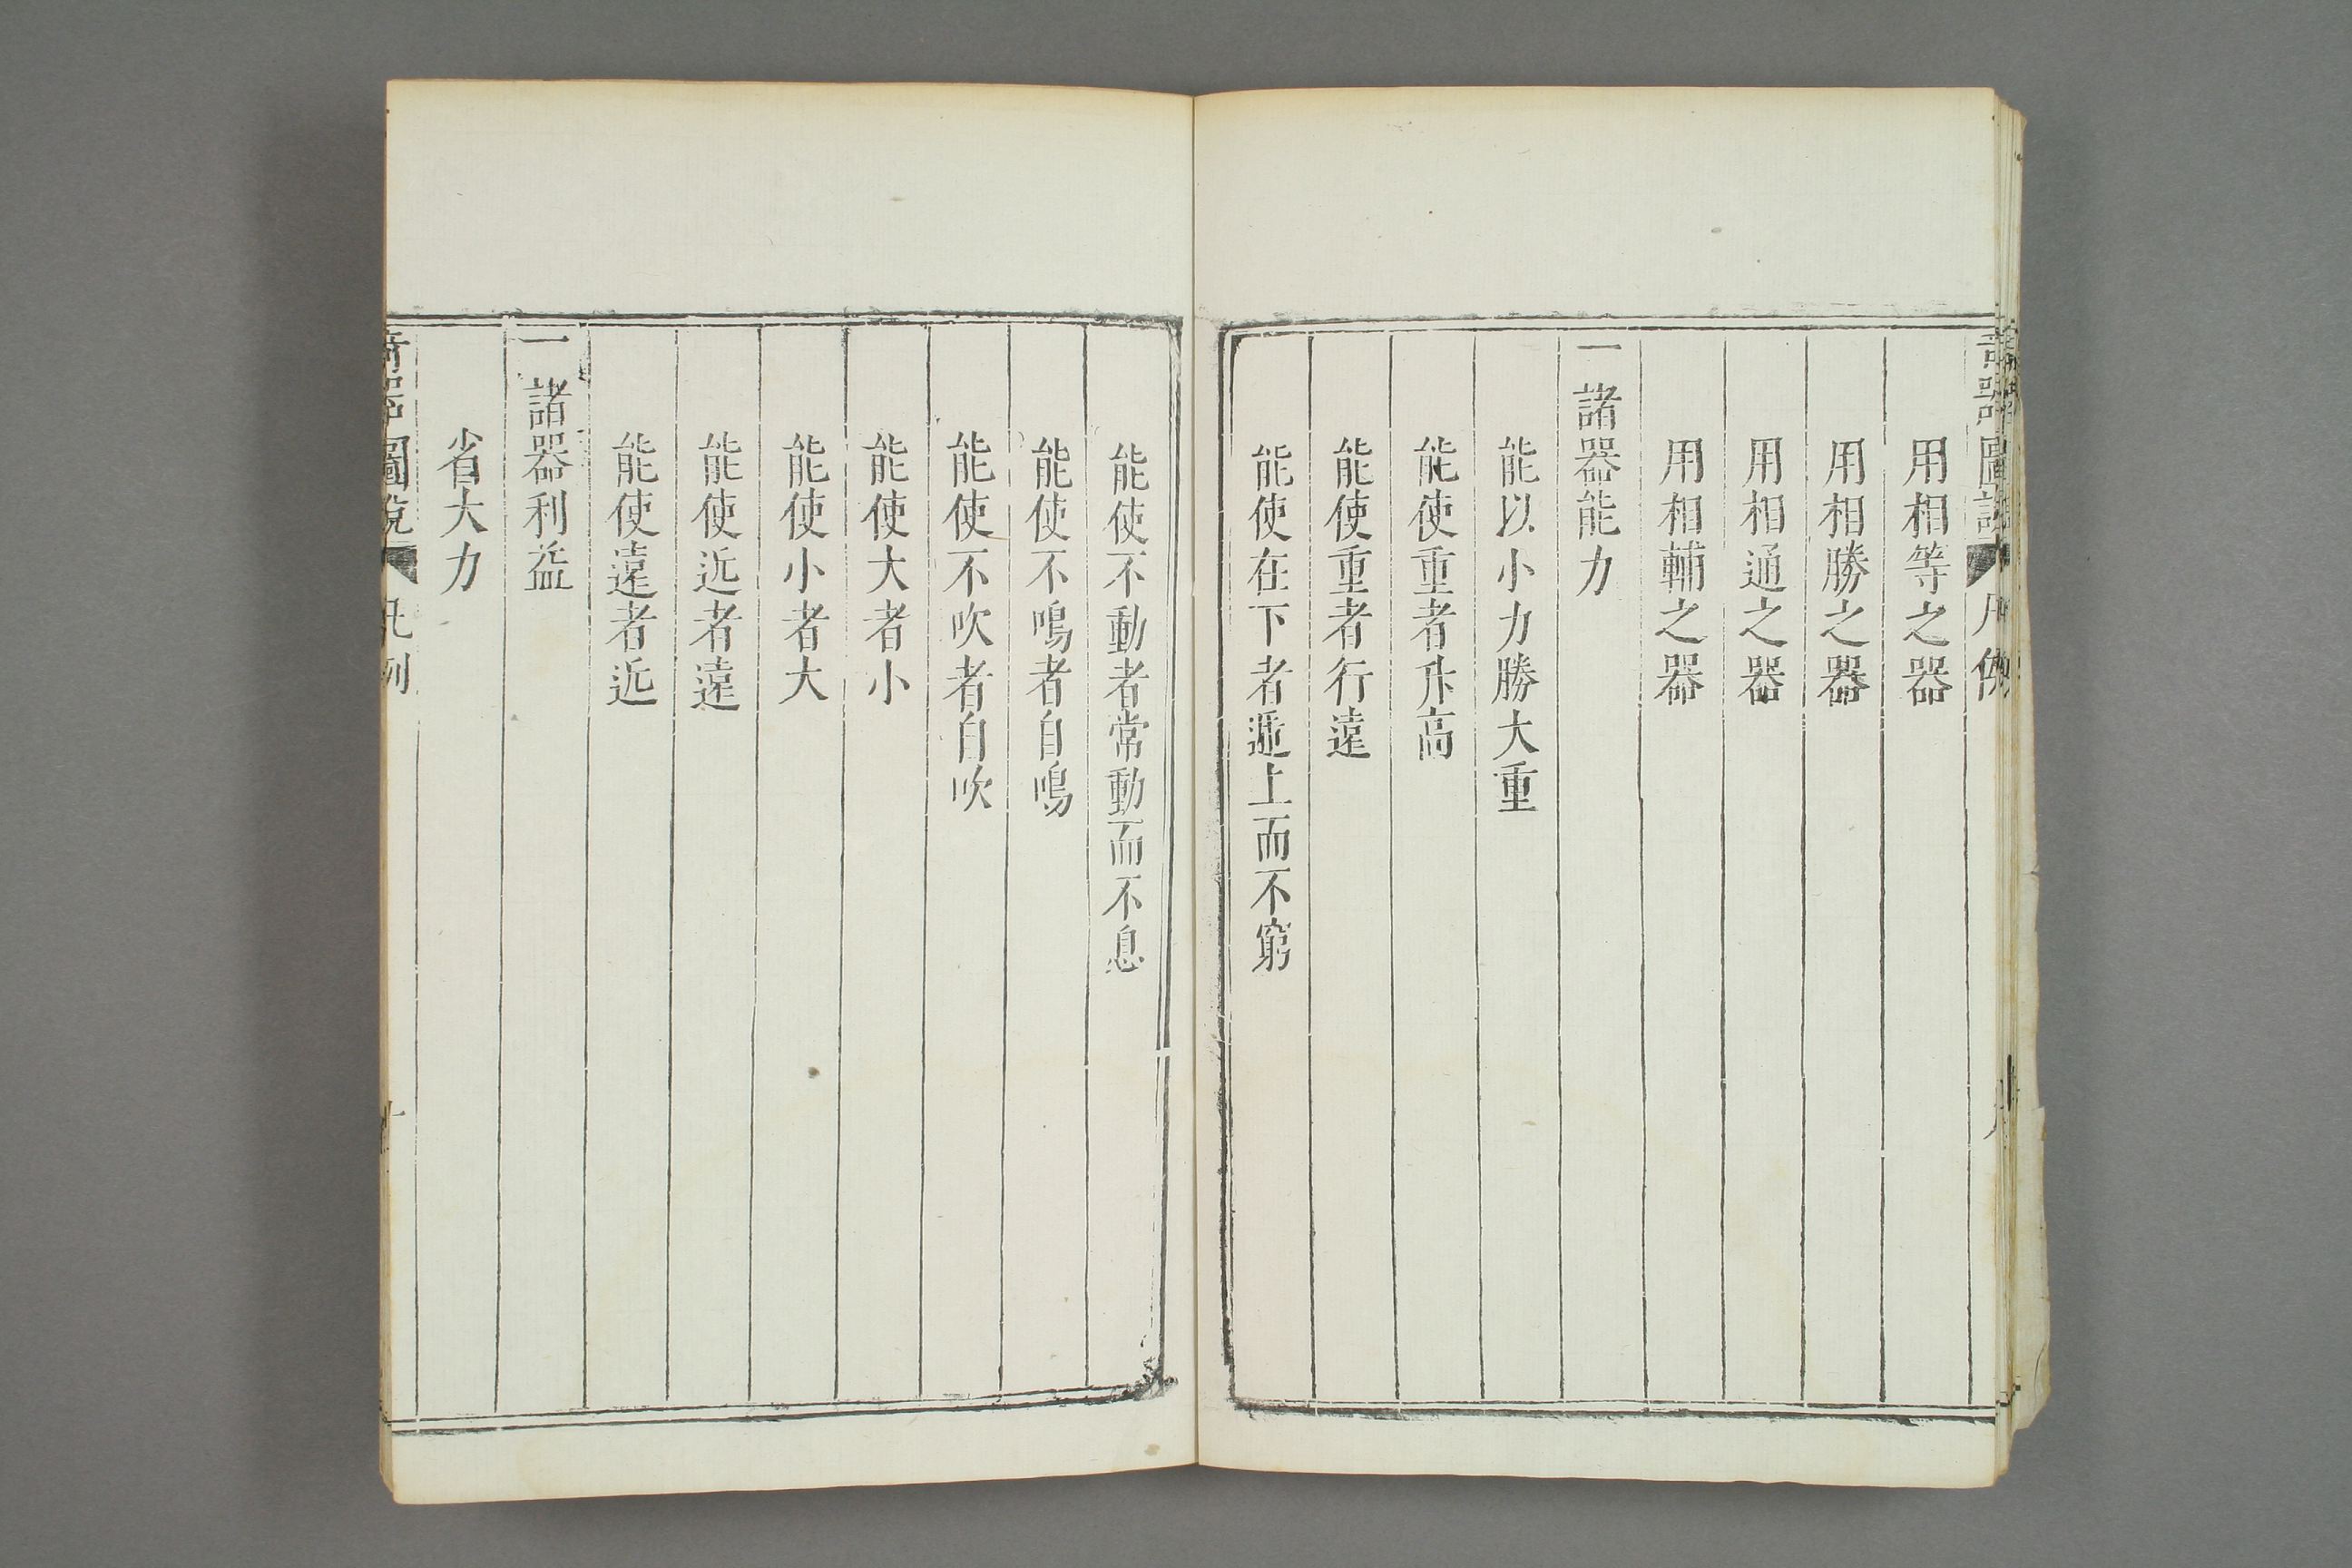 用相等之器
用相勝之器
用相通之器
用相輔之器
一諸器能力
能以小力勝大重
能使重者升高
能使重者行遠
能使在下者遞上而不窮
能使不動者常動而不息
能使不鳴者自鳴
能使不吹者自吹
能使大者小
能使小者大
能使近者遠
能使遠者近
一諸器利益
省大力
奇器圖說 凡例 十